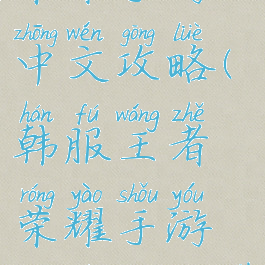 zhōng wén gōng lüè
中文攻略(
hán fú wáng zhě
韩服王者
róng yào shǒu yóu
荣耀手游